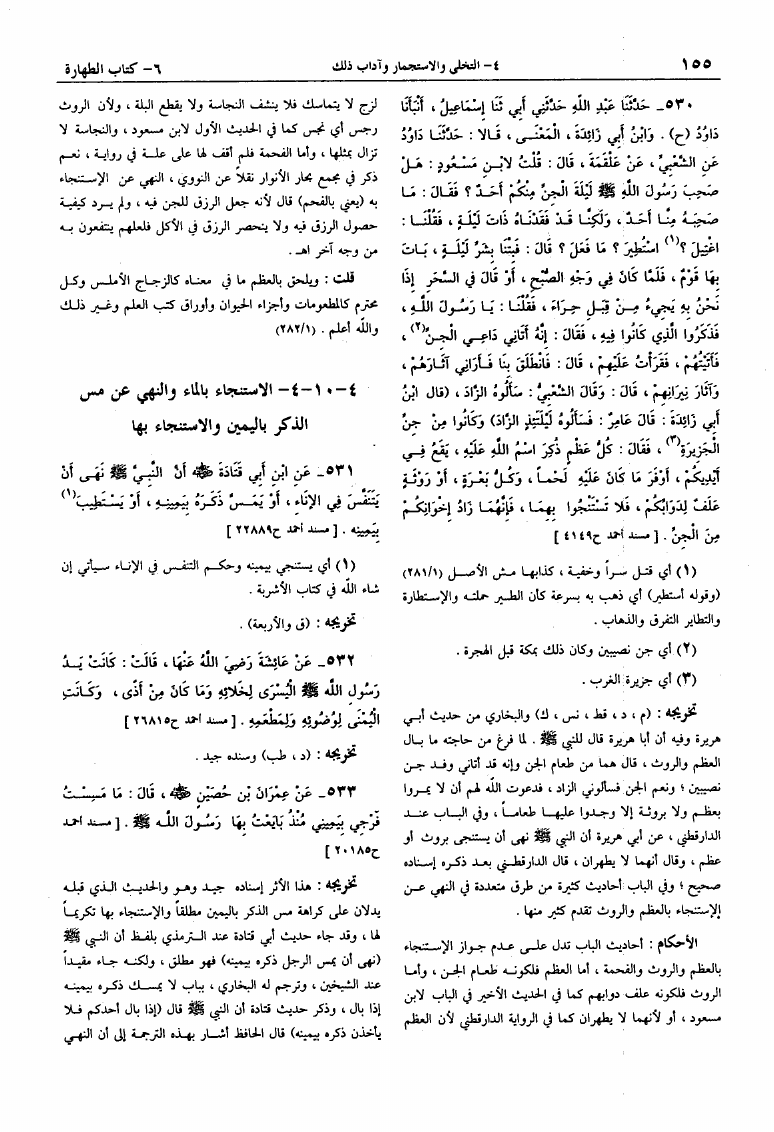 ١٥٥
٤- التخلي والاستجمار وآداب ذلك
٦- كتاب الطهارة
٥٣٠- حَدَّثَنَا عَبْدُ اللَّهِ حَدَّثَنِي أَبِي ثَنَا إِسْمَاعِيلُ ، أَنْبَأَنَا
دَاوُدُ (ح) . وَابْنُ أَبِي زَائِدَةَ ، الْمَعْنَى ، قَالا : حَدَّثَنَا دَاوُدُ
عَنِ الشَّعْبِيِّ ، عَنْ عَلْقَمَةَ ، قَالَ : قُلْتُ لابْنِ مَسْعُودٍ : هَلْ
صَحِبَ رَسُولَ اللَّهِ ﷺ لَيْلَةَ الْجِنِّ مِنْكُمْ أَحَدٌ ؟ فَقَالَ : مَا
صَحِبَهُ مِنَّا أَحَدٌ ، وَلَكِنَّا قَدْ فَقَدْنَاهُ ذَاتَ لَيْلَةٍ ، فَقُلْنَا :
اغْتِيلَ ؟(١) اسْتُطِيرَ ؟ مَا فَعَلَ ؟ قَالَ : فَبِتْنَا بِشَرِّ لَيْلَةٍ ، بَاتَ
بِهَا قَوْمٌ ، فَلَمَّا كَانَ فِي وَجْهِ الصُّبْحِ ، أَوْ قَالَ فِي السَّحَرِ إِذَا
نَحْنُ بِهِ يَجِيءُ مِنْ قِبَلِ حِرَاءَ ، فَقُلْنَا : يَا رَسُولَ اللَّهِ ،
فَذَكَرُوا الَّذِي كَانُوا فِيهِ ، فَقَالَ : إِنَّهُ أَتَانِي دَاعِي الْجِنِّ(٢) ،
فَأَتَيْتُهُمْ ، فَقَرَأْتُ عَلَيْهِمْ ، قَالَ : فَانْطَلَقَ بِنَا فَأَرَانِي آثَارَهُمْ ،
وَآثَارَ نِيرَانِهِمْ ، قَالَ : وَقَالَ الشَّعْبِيُّ : سَأَلُوهُ الزَّادَ ، (قال ابْنُ
أَبِي زَائِدَةَ : قَالَ عَامِرٌ : فَسَأَلُوهُ لَيْلَتَئِذٍ الزَّادَ) وَكَانُوا مِنْ جِنِّ
الْجَزِيرَةِ(٣) ، فَقَالَ : كُلُّ عَظْمٍ ذُكِرَ اسْمُ اللَّهِ عَلَيْهِ ، يَقَعُ فِي
أَيْدِيكُمْ ، أَوْفَرَ مَا كَانَ عَلَيْهِ لَحْماً ، وَكُلُّ بَعْرَةٍ ، أَوْ رَوْثَةٍ
عَلَفٌ لِدَوَابِّكُمْ ، فَلا تَسْتَنْجُوا بِهِمَا ، فَإِنَّهُمَا زَادُ إِخْوَانِكُمْ
مِنَ الْجِنِّ . [مسند أحمد ح٤١٤٩]
(١) أي قتل سراً وخفية ، كذابها مش الأصل (٢٨١/١)
(وقوله أستطير) أي ذهب به بسرعة كأن الطير حملته والإستطارة
والتطاير التفرق والذهاب .
(٢) أي جن نصيبين وكان ذلك بمكة قبل الهجرة .
(٣) أي جزيرة الغرب .
تخريجه : (م ، د ، قط ، نس ، ك) والبخاري من حديث أبي
هريرة وفيه أن أبا هريرة قال للنبي ﷺ . لما فرغ من حاجته ما بال
العظم والروث ، قال هما من طعام الجن وإنه قد أتاني وفد جن
نصيبين ؛ ونعم الجن فسألوني الزاد ، فدعوت الله لهم أن لا يمروا
بعظم ولا بروثة إلا وجدوا عليها طعاماً ، وفي الباب عند
الدارقطني ، عن أبي هريرة أن النبي ﷺ نهى أن يستنجى بروث أو
عظم ، وقال أنهما لا يطهران ، قال الدارقطني بعد ذكره إسناده
صحيح ؛ وفي الباب أحاديث كثيرة من طرق متعددة في النهي عن
الإستنجاء بالعظم والروث تقدم كثير منها .
الأحكام : أحاديث الباب تدل على عدم جواز الإستنجاء
بالعظم والروث والفحمة ، أما العظم فلكونه طعام الجن ، وأما
الروث فلكونه علف دوابهم كما في الحديث الأخير في الباب لابن
مسعود ، أو لأنهما لا يطهران كما في الرواية الدارقطني لأن العظم
لزج لا يتماسك فلا ينشف النجاسة ولا يقطع البلة ، ولأن الروث
رجس أي نجس كما في الحديث الأول لابن مسعود ، والنجاسة لا
تزال بمثلها ، وأما الفحمة فلم أقف لها على علة في رواية ، نعم
ذكر في مجمع بحار الأنوار نقلاً عن النووي ، النهي عن الإستنجاء
به (يعني بالفحم) قال لأنه جعل الرزق للجن فيه ، ولم يرد كيفية
حصول الرزق فيه ولا ينحصر الرزق في الأكل فلعلهم ينتفعون به
من وجه آخر اهـ .
قلت : ويلحق بالعظم ما في معناه كالزجاج الأملس وكل
محترم كالمطعومات وأجزاء الحيوان وأوراق كتب العلم وغير ذلك
والله أعلم . (٢٨٢/١)
٤-١٠-٤- الاستنجاء بالماء والنهي عن مس
الذكر باليمين والاستنجاء بها
٥٣١- عَنِ ابْنِ أَبِي قَتَادَةَ ﷺ أَنَّ النَّبِيَّ ﷺ نَهَى أَنْ
يَتَنَفَّسَ فِي الإِنَاءِ ، أَوْ يَمَسَّ ذَكَرَهُ بِيَمِينِهِ ، أَوْ يَسْتَطِيبَ(١)
بِيَمِينِهِ . [مسند أحمد ح٢٢٨٨٩]
(١) أي يستنجي بيمينه وحكم التنفس في الإناء سيأتي إن
شاء الله في كتاب الأشربة .
تخريجه : (ق والأربعة) .
٥٣٢- عَنْ عَائِشَةَ رَضِيَ اللَّهُ عَنْهَا ، قَالَتْ : كَانَتْ يَدُ
رَسُولِ اللَّهِ ﷺ الْيُسْرَى لِخَلائِهِ وَمَا كَانَ مِنْ أَذًى ، وَكَانَتِ
الْيُمْنَى لِوُضُوئِهِ وَلِمَطْعَمِهِ . [مسند أحمد ح٢٦٨١٥]
تخريجه : (د ، طب) وسنده جيد .
٥٣٣- عَنْ عِمْرَانَ بْنِ حُصَيْنٍ ، قَالَ : مَا مَسِسْتُ
فَرْجِي بِيَمِينِي مُنْذُ بَايَعْتُ بِهَا رَسُولَ اللَّهِ ﷺ . [مسند أحمد
ح٢٠١٨٥]
تخريجه : هذا الأثر إسناده جيد وهو والحديث الذي قبله
يدلان على كراهة مس الذكر باليمين مطلقاً والإستنجاء بها تكريماً
لها ، وقد جاء حديث أبي قتادة عند الترمذي بلفظ أن النبي ﷺ
(نهى أن يمس الرجل ذكره بيمينه) فهو مطلق ، ولكنه جاء مقيداً
عند الشيخين ، وترجم له البخاري ، بباب لا يمسك ذكره بيمينه
إذا بال ، وذكر حديث قتادة أن النبي ﷺ قال (إذا بال أحدكم فلا
يأخذن ذكره بيمينه) قال الحافظ أشار بهذه الترجمة إلى أن النهي